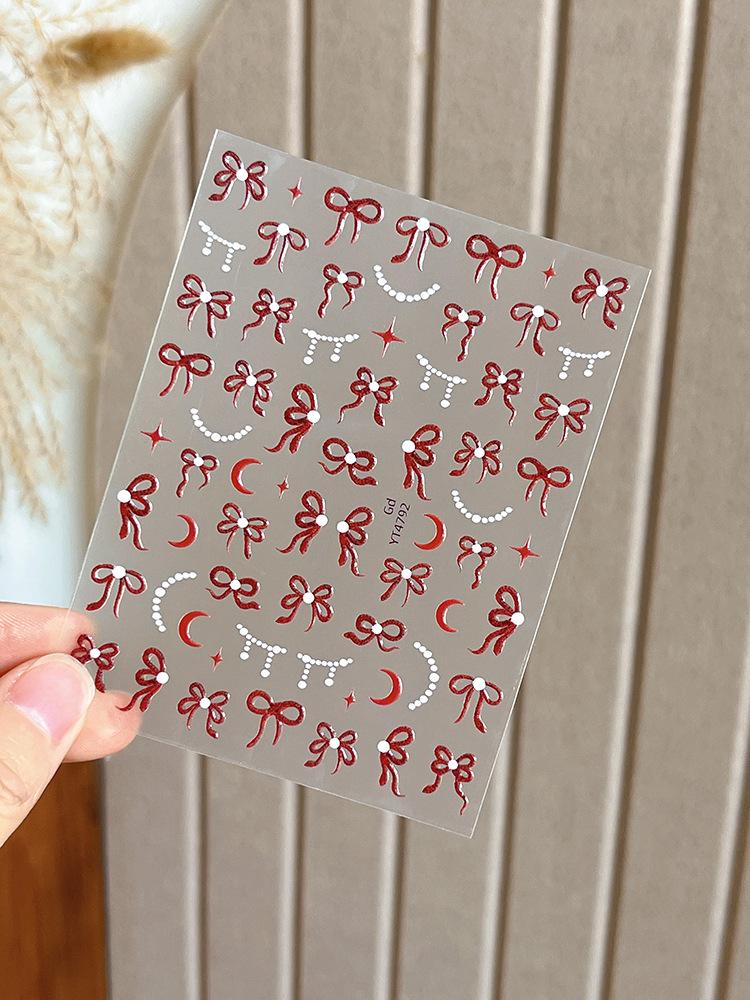 Gd
YT4792